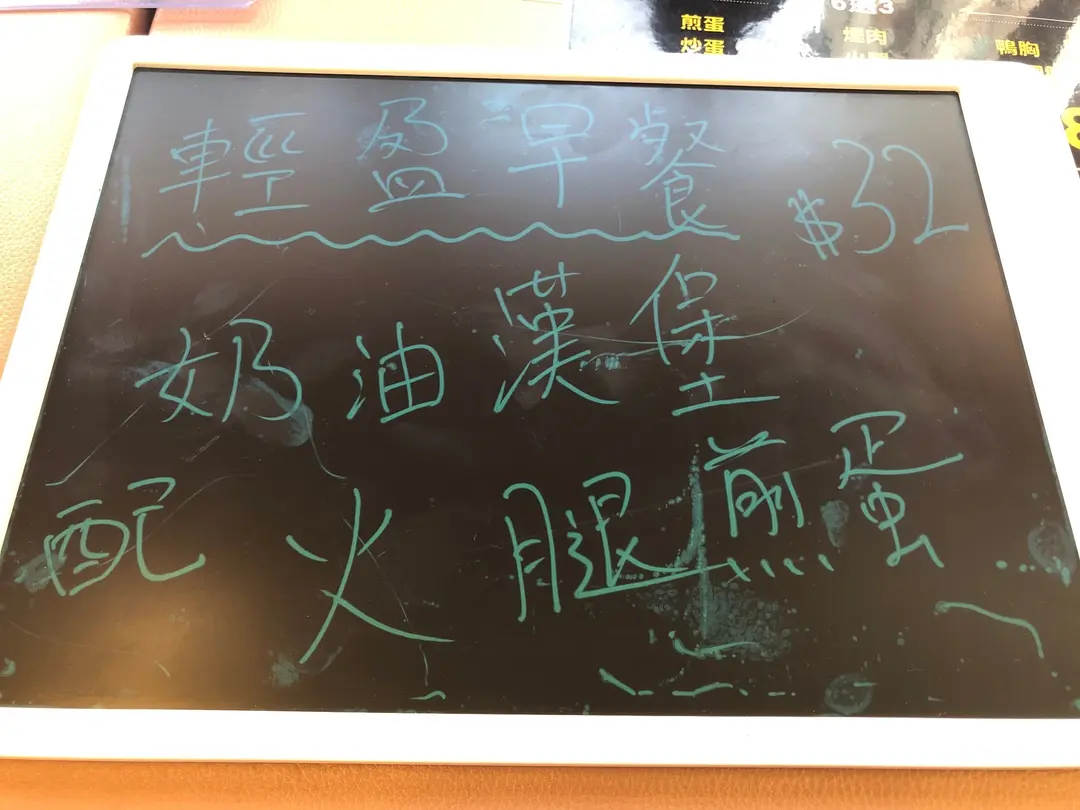 6選3
煎蛋
炒蛋
煙肉
鴨胸
輕盈早餐 $32
奶油漢堡
配火腿煎蛋